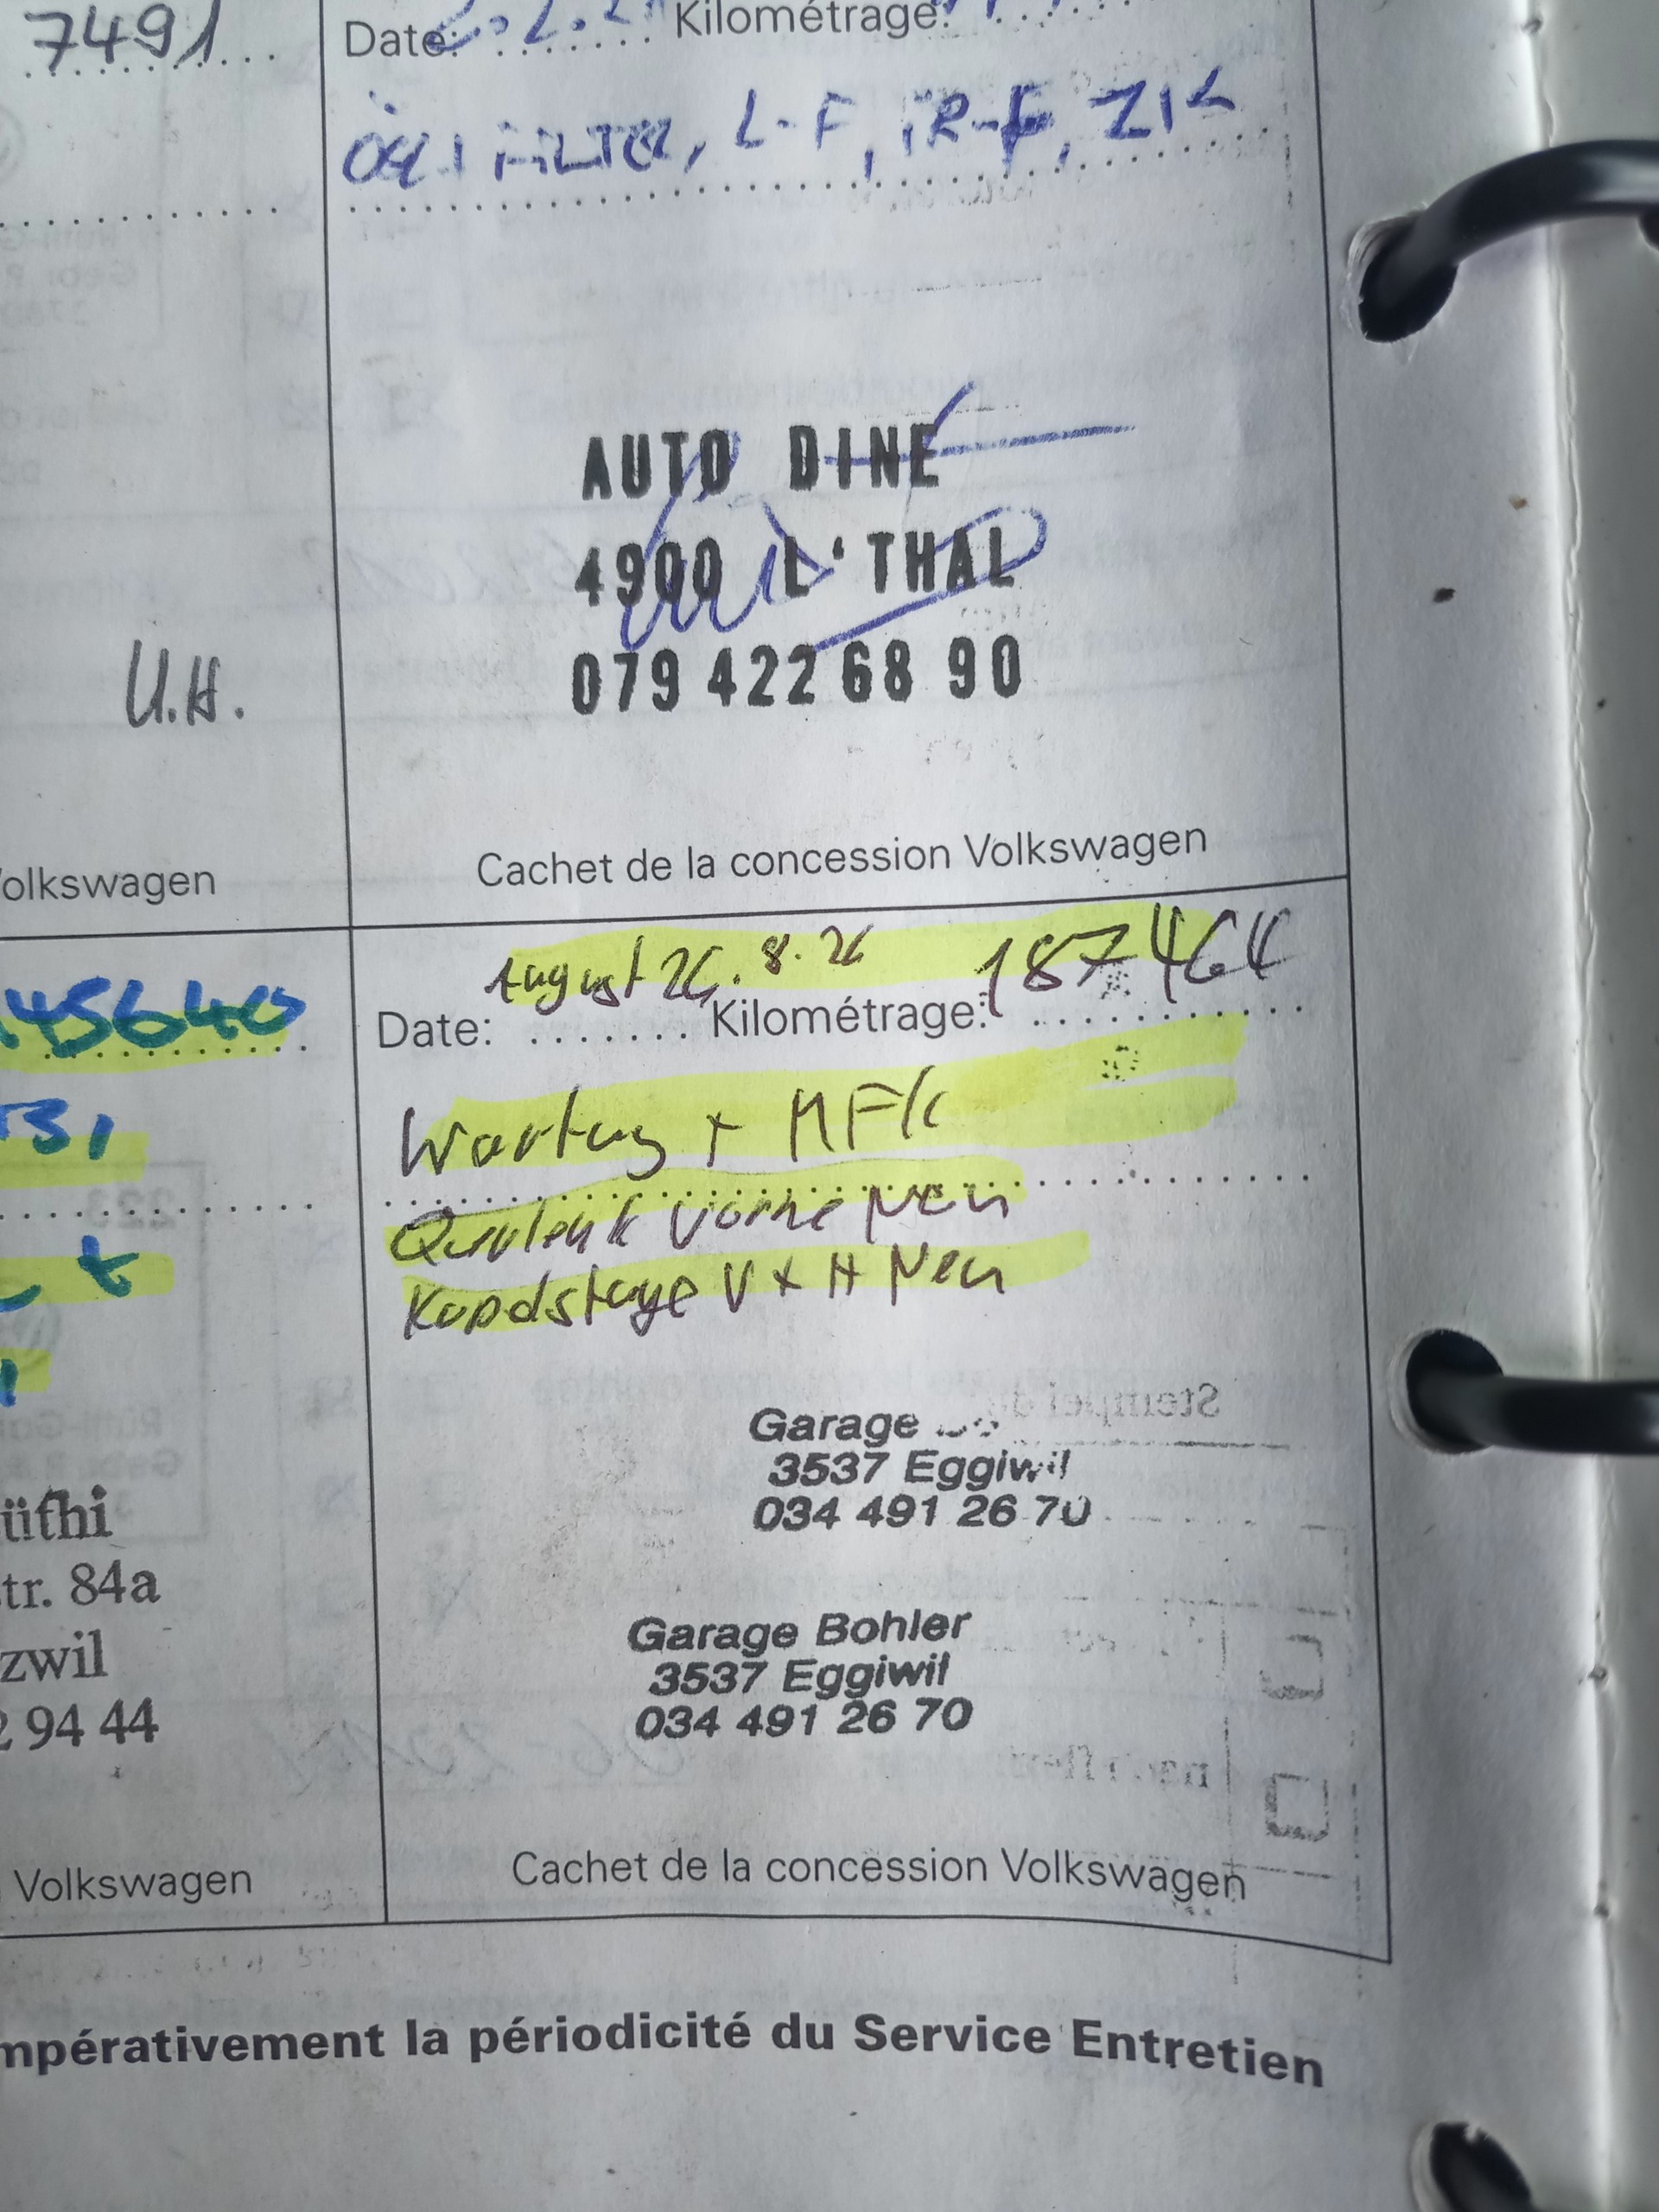 7491
Date: Kilométrage:
ÖL+FILTER, L-F, IR-F, ZK
AUTO DINE
4900 L'THAL
079 422 68 90
U.H.
Volkswagen
Cachet de la concession Volkswagen
145640
August 26. 8. 26
Date: Kilométrage:
Wartug + MFK
Querlenk vorne Neu
Koppelstange V + H Neu
Garage
3537 Eggiwil
034 491 26 70
üthi
tr. 84a
zwil
94 44
Garage Bohler
3537 Eggiwil
034 491 26 70
Volkswagen
Cachet de la concession Volkswagen
mpérativement la périodicité du Service Entretien